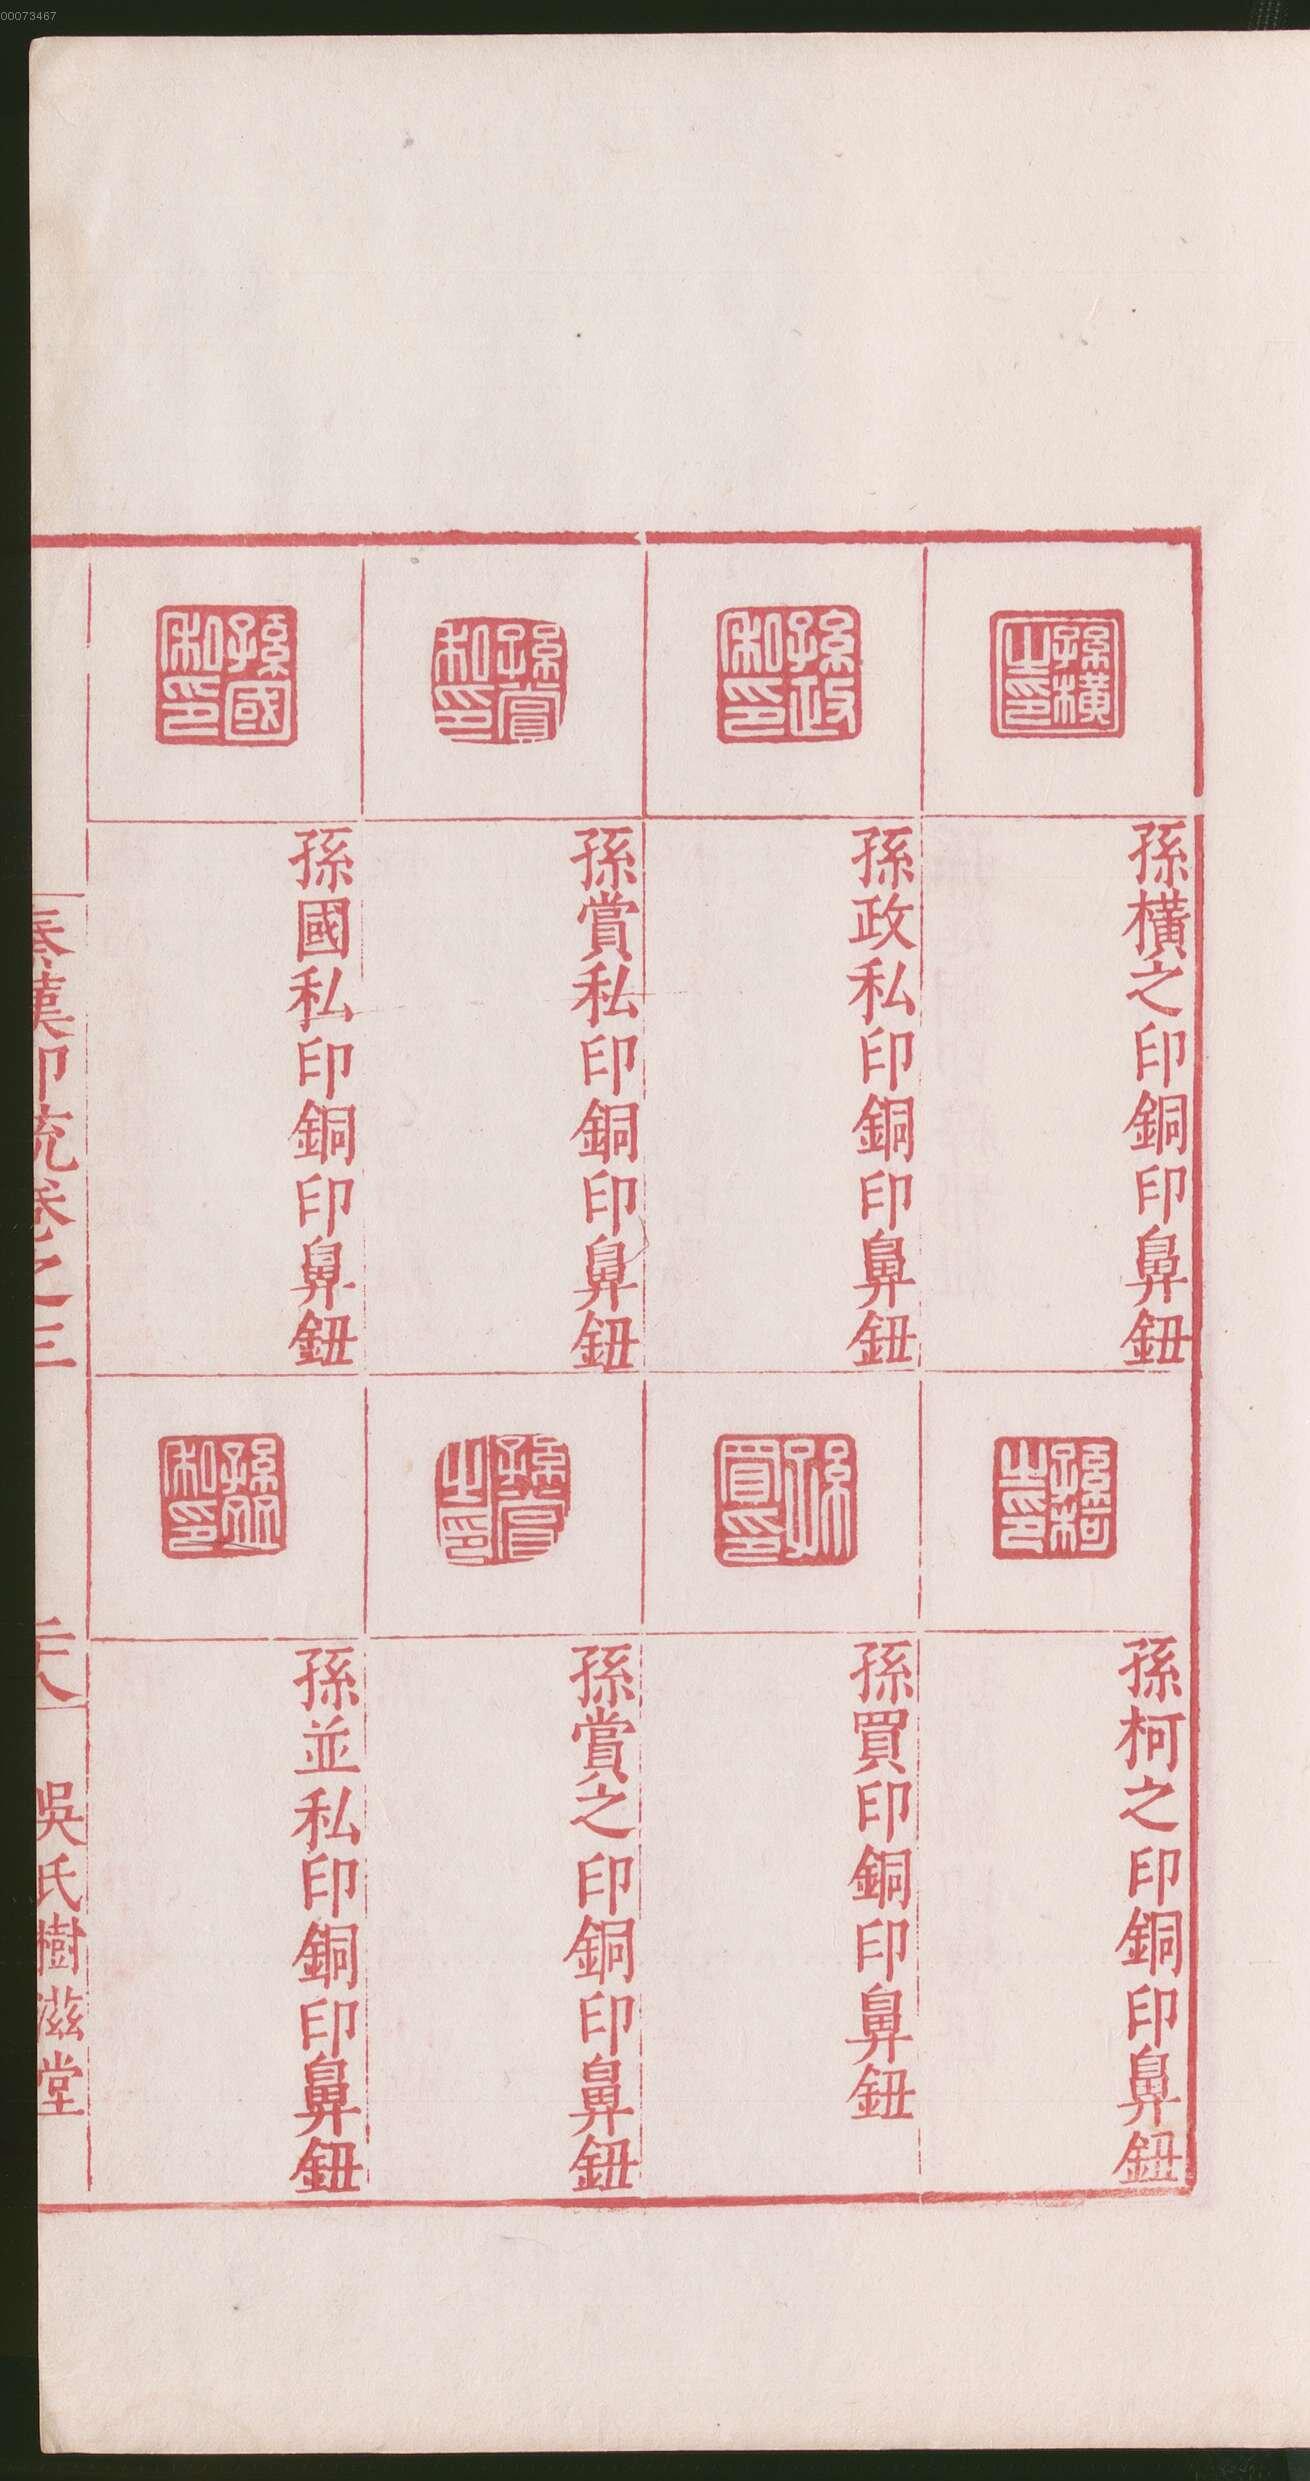 00073467
孫橫之印
孫橫之印銅印鼻鈕
孫柯之印
孫柯之印銅印鼻鈕
孫政私印
孫政私印銅印鼻鈕
孫買印
孫買印銅印鼻鈕
孫賞私印
孫賞私印銅印鼻鈕
孫之印
孫賞之印銅印鼻鈕
孫國私印
孫國私印銅印鼻鈕
孫並私印
孫並私印銅印鼻鈕
秦漢印統卷之三
二十八
吳氏樹滋堂